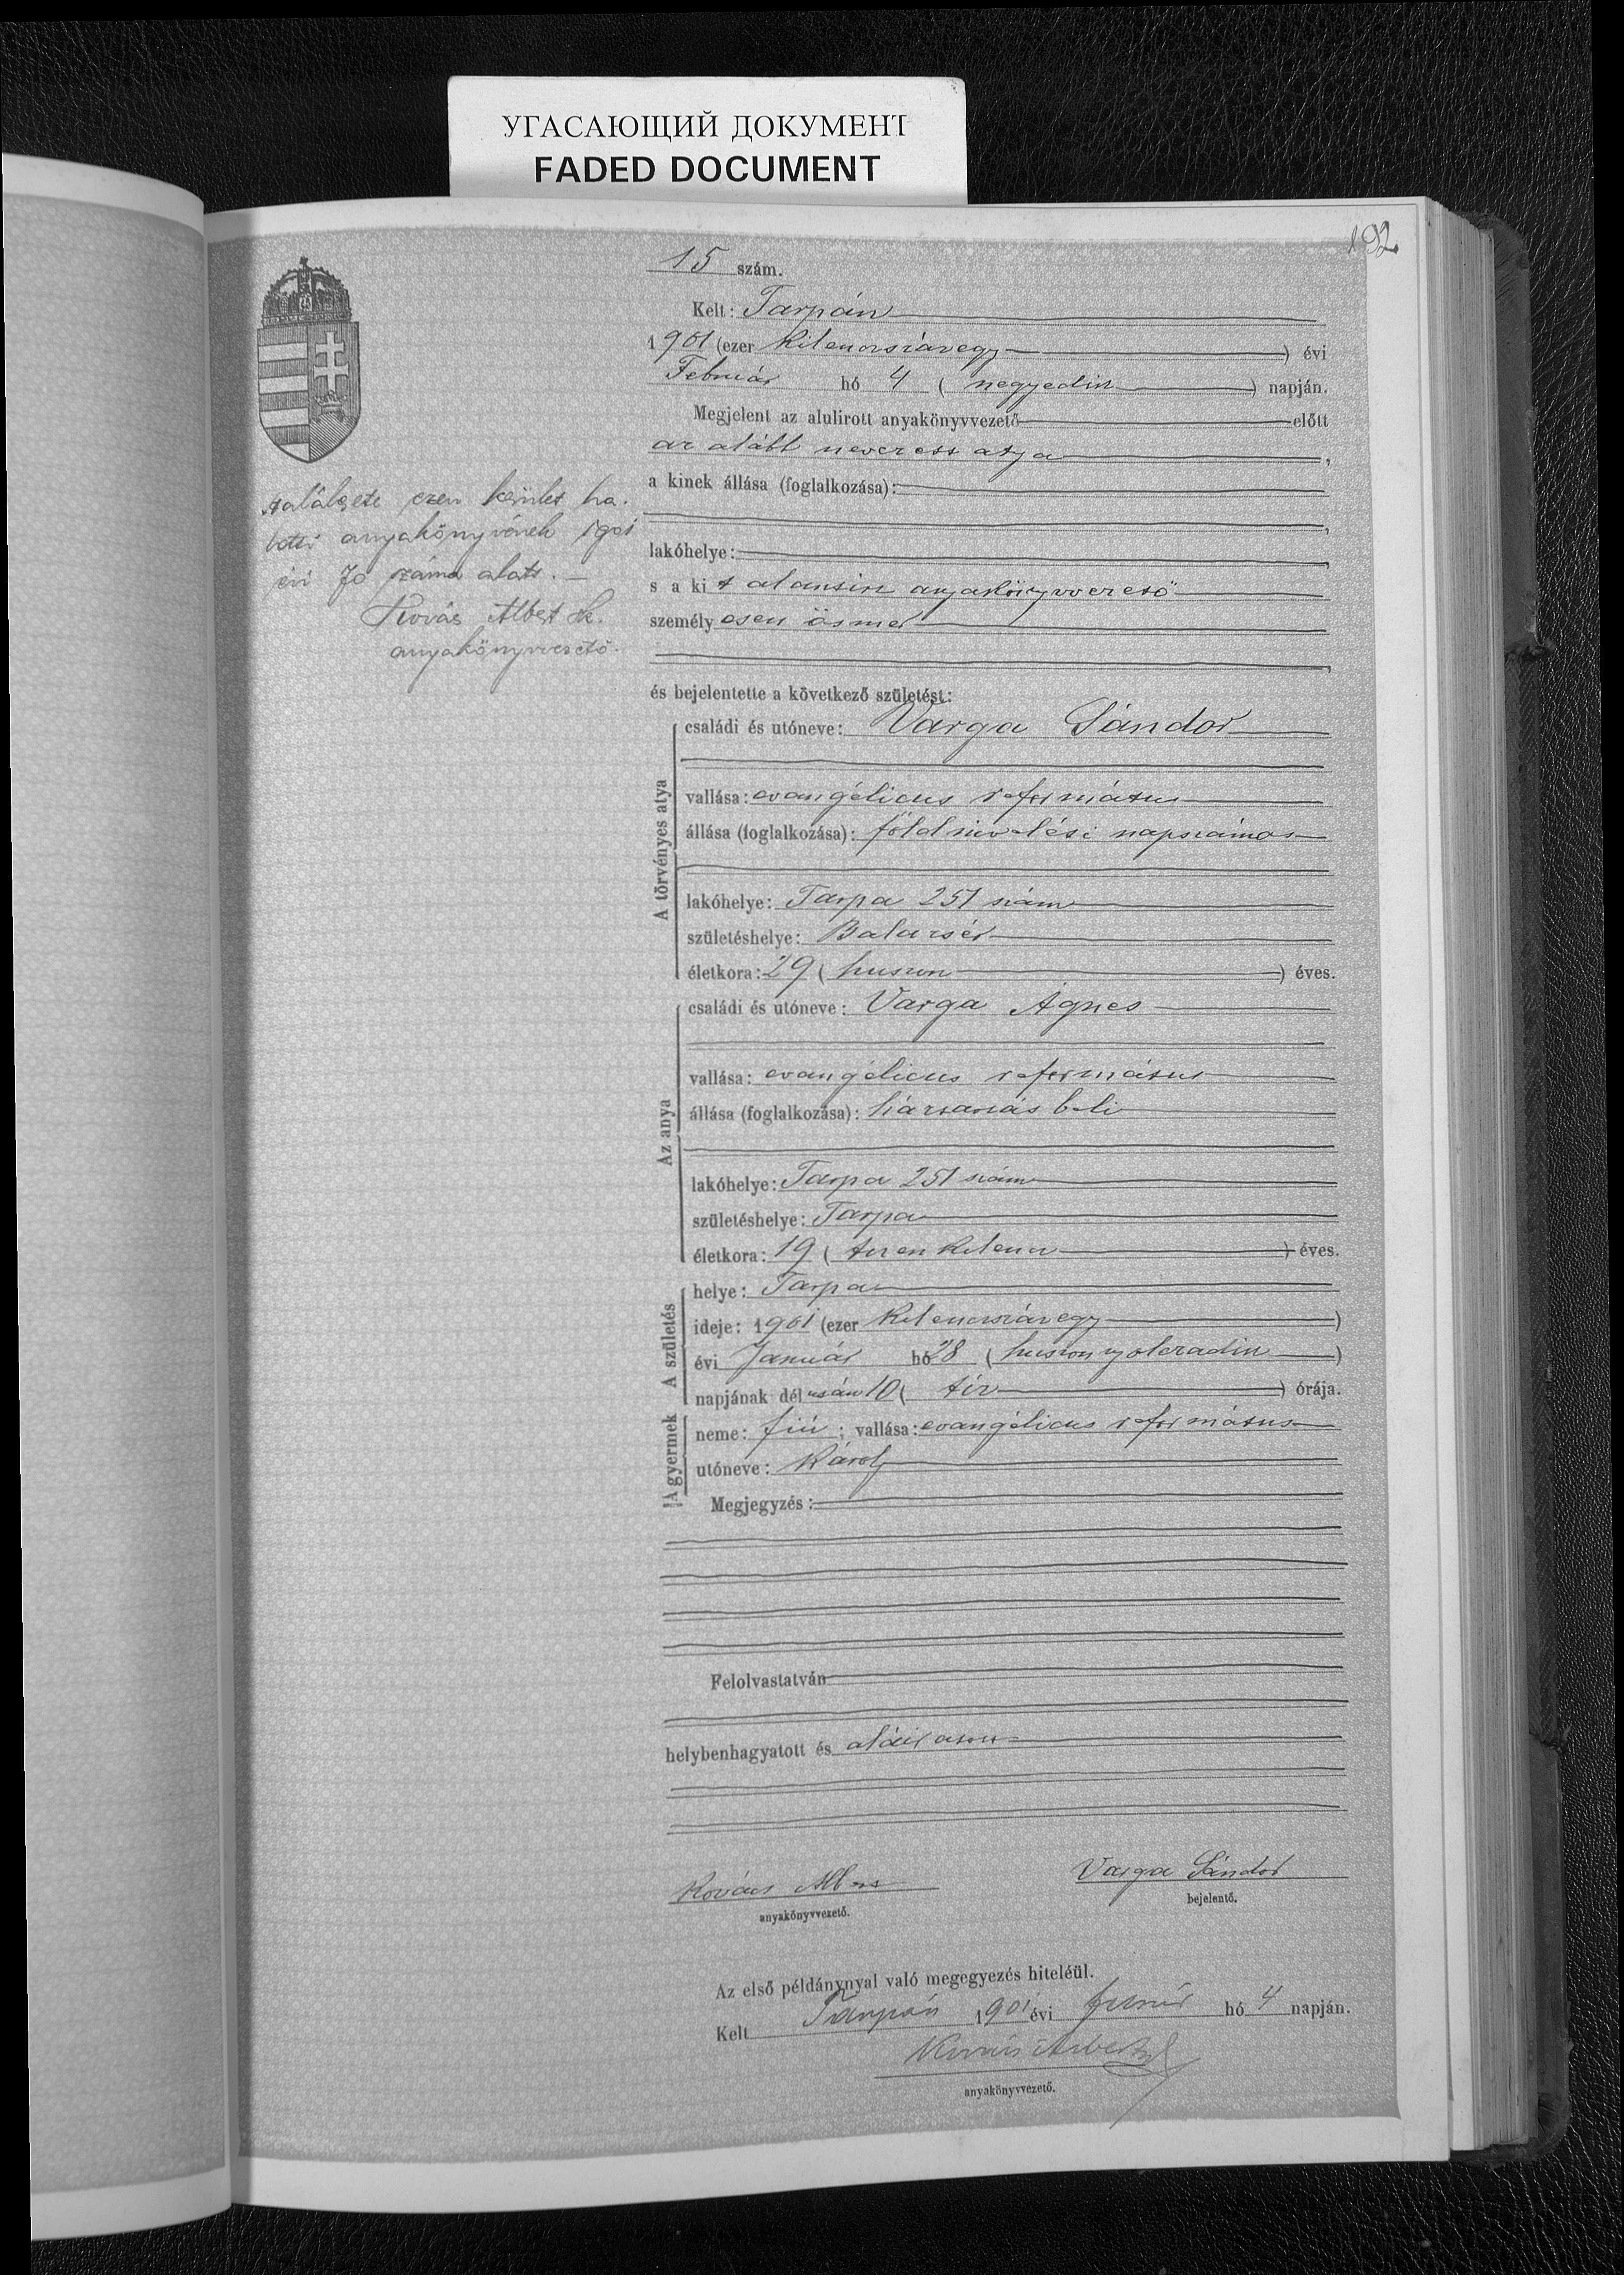 УГАСАЮЩИЙ ДОКУМЕНТ
FADED DOCUMENT
192
15 szám.
Kelt: Tarpán
1901 (ezer kilenczszázegy) évi
Február hó 4 (negyedik) napján.
Megjelent az alulirott anyakönyvvezető előtt
az alább nevezett atya,
a kinek állása (foglalkozása):
lakóhelye:
s a kit alantirt anyakönyvvezető
személyesen ösmer
és bejelentette a következő születést:
A törvényes atya
családi és utóneve: Varga Sándor
vallása: evangélicus református
állása (foglalkozása): földmivelési napszámos
lakóhelye: Tarpa 251 szám
születéshelye: Balazsér
életkora: 29 (huszon) éves.
Az anya
családi és utóneve: Varga Ágnes
vallása: evangélicus református
állása (foglalkozása): háztartásbeli
lakóhelye: Tarpa 251 szám
születéshelye: Tarpa
életkora: 19 (tizenkilencz) éves.
A születés
helye: Tarpa
ideje: 1901 (ezer kilenczszázegy)
évi Január hó 28 (huszonnyolczadik)
napjának délután 10 (tíz) órája.
A gyermek
neme: fiú; vallása: evangélicus református
utóneve: Károly
Megjegyzés:
Felolvastatván
helybenhagyatott és aláíratott
Kovács Albert
anyakönyvvezető.
Varga Sándor
bejelentő.
Az első példánynyal való megegyezés hiteléül.
Kelt Tarpán 1901 évi február hó 4 napján.
Kovács Albert
anyakönyvvezető.
ezen kerület ha-
lotti anyakönyvének 1901
évi 70 száma alatt.
Kovács Albert sk.
anyakönyvvezető.